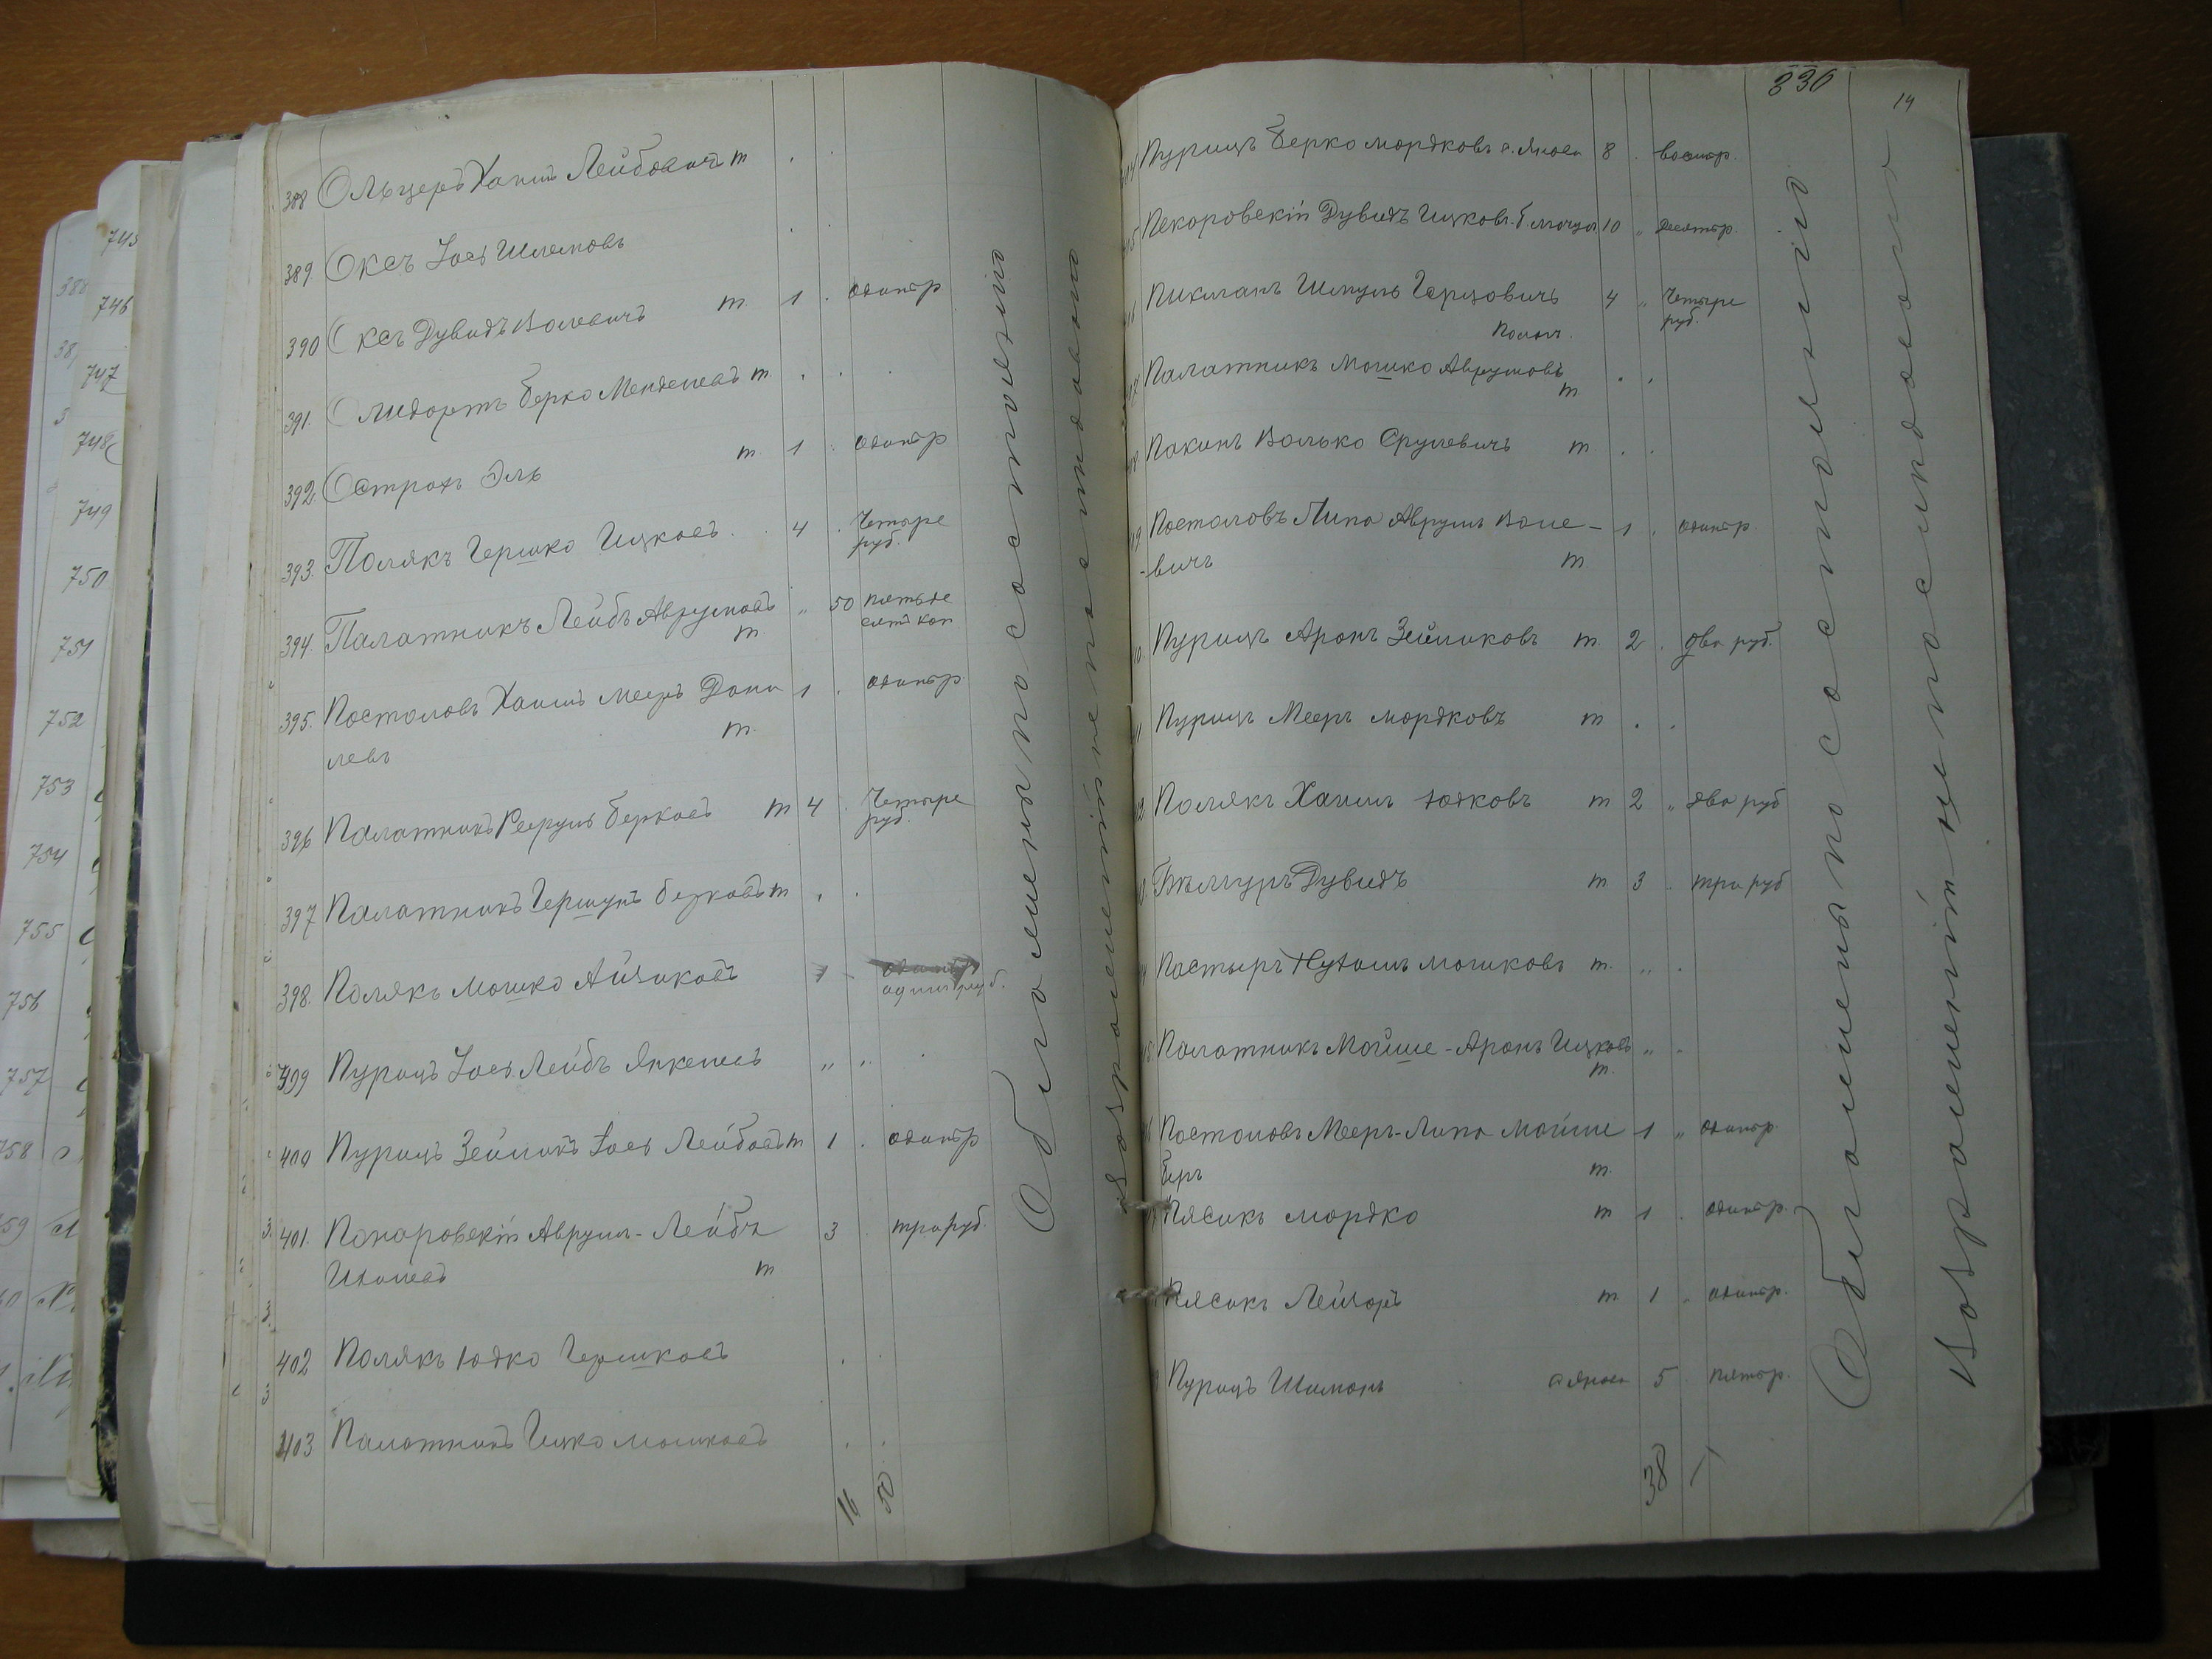 745
746
747
748
749
750
751
752
753
754
755
756
757
388 Ольцеръ Хаимъ Лейбовичъ т
389 Оксъ Іось Шлемовъ
390 Оксъ Дувидъ Волевичъ т. 1 . одинъ р
391. Берко Менделевъ т
392. Острохъ Эль т. 1 . одинъ р
393. Полякъ Гершко Ицковъ. 4 . Четыре
руб.
394. Палатникъ Лейбъ Аврумовъ „ 50 пятьде
т. сятъ коп
395. Постоловъ Хаимъ Мееръ Дани 1 . одинъ р.
левъ т.
396 Палатникъ Берковъ т 4 . Четыре
руб.
397 Палатникъ Гершунъ Берковъ т
398. Полякъ Мошко Айзиковъ 1 -
одинъ руб.
399 Пурицъ Іось Лейбъ Янкелевъ „ „
400 Пурицъ Зейликъ Іось Лейбовъ т 1 . одинъ р
401. Покаровскій Аврумъ-Лейбъ 3 три руб.
т
402 Полякъ Юдко Гершковъ
403 Палатникъ Ицко Мошковъ
16 50
Обложены по состоянію
возраженій не послѣдовало
330
14
Пурицъ Берко Мордковъ 8 . восемь р.
Пекаровскій Дувидъ Ицковъ 10 „ десять р.
Пикманъ Шмуль Герцовичъ 4 „ Четыре
руб.
Палатникъ Мошко Аврумовъ
т.
Пакинъ Волько Срулевичъ т.
Постоловъ Липа Аврумъ Воле- 1 . одинъ р
-вичъ т
Пурицъ Аронъ Зейликовъ т. 2 . два руб.
Пурицъ Мееръ Мордковъ т
Полякъ Хаимъ Юдковъ т 2 „ два руб
Дувидъ т 3 . три руб
Пастыръ Нухимъ Мошковъ т. „
Палатникъ Мойше-Аронъ Ицковъ „
т.
Постоловъ Мееръ-Липа Мойше 1 „ одинъ р.
беръ т.
Пясикъ Мордко т 1 . одинъ р.
Пясикъ Лейзоръ т. 1 . одинъ р.
Пурицъ Шимонъ 5 . пять р.
38
Обложены по состоянію
Возраженій не послѣдовало